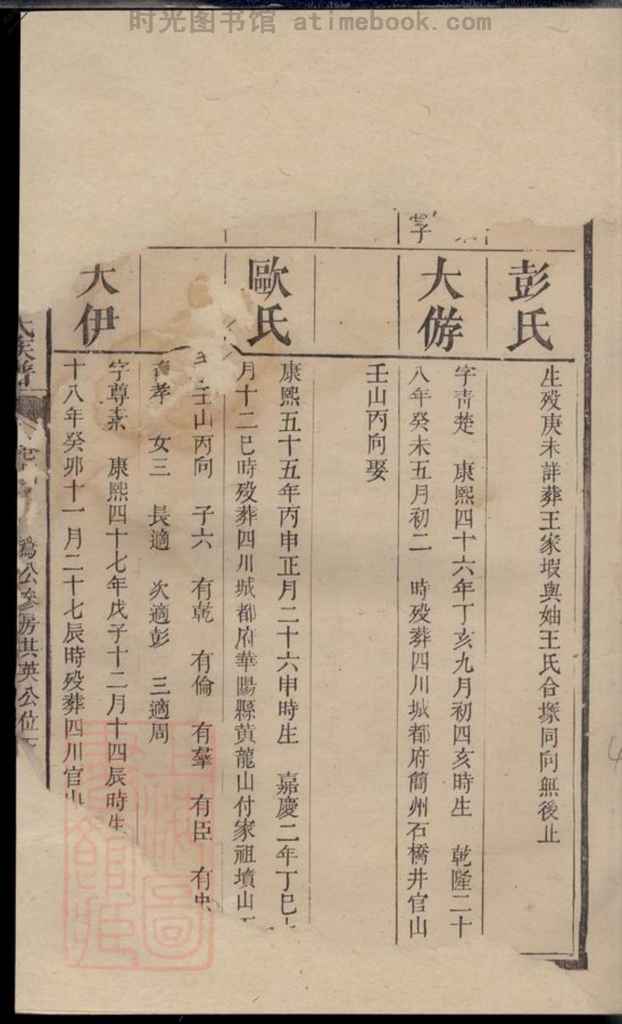 时光图书馆 atimebook.com
彭氏
生殁庚未詳葬王家塅與妯王氏合塚同向無後止
字
大㳺
字青楚 康熙四十六年丁亥九月初四亥時生 乾隆二十
八年癸未五月初二 時殁葬四川城都府簡州石橋井官山
壬山丙向娶
歐氏
康熙五十五年丙申正月二十六申時生 嘉慶二年丁巳
月十二巳時殁葬四川城都府華陽縣黄龍山付家祖墳山
壬山丙向 子六 有乾 有倫 有羣 有臣 有忠
有孝 女三 長適 次適彭 三適周
大伊
字尊素 康熙四十七年戊子十二月十四辰時生
十八年癸卯十一月二十七辰時殁葬四川官山
氏族譜
公參房其英公位下